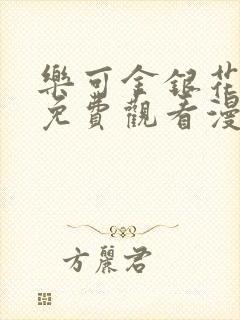 樂可金銀花
免費觀看漫
方麗君